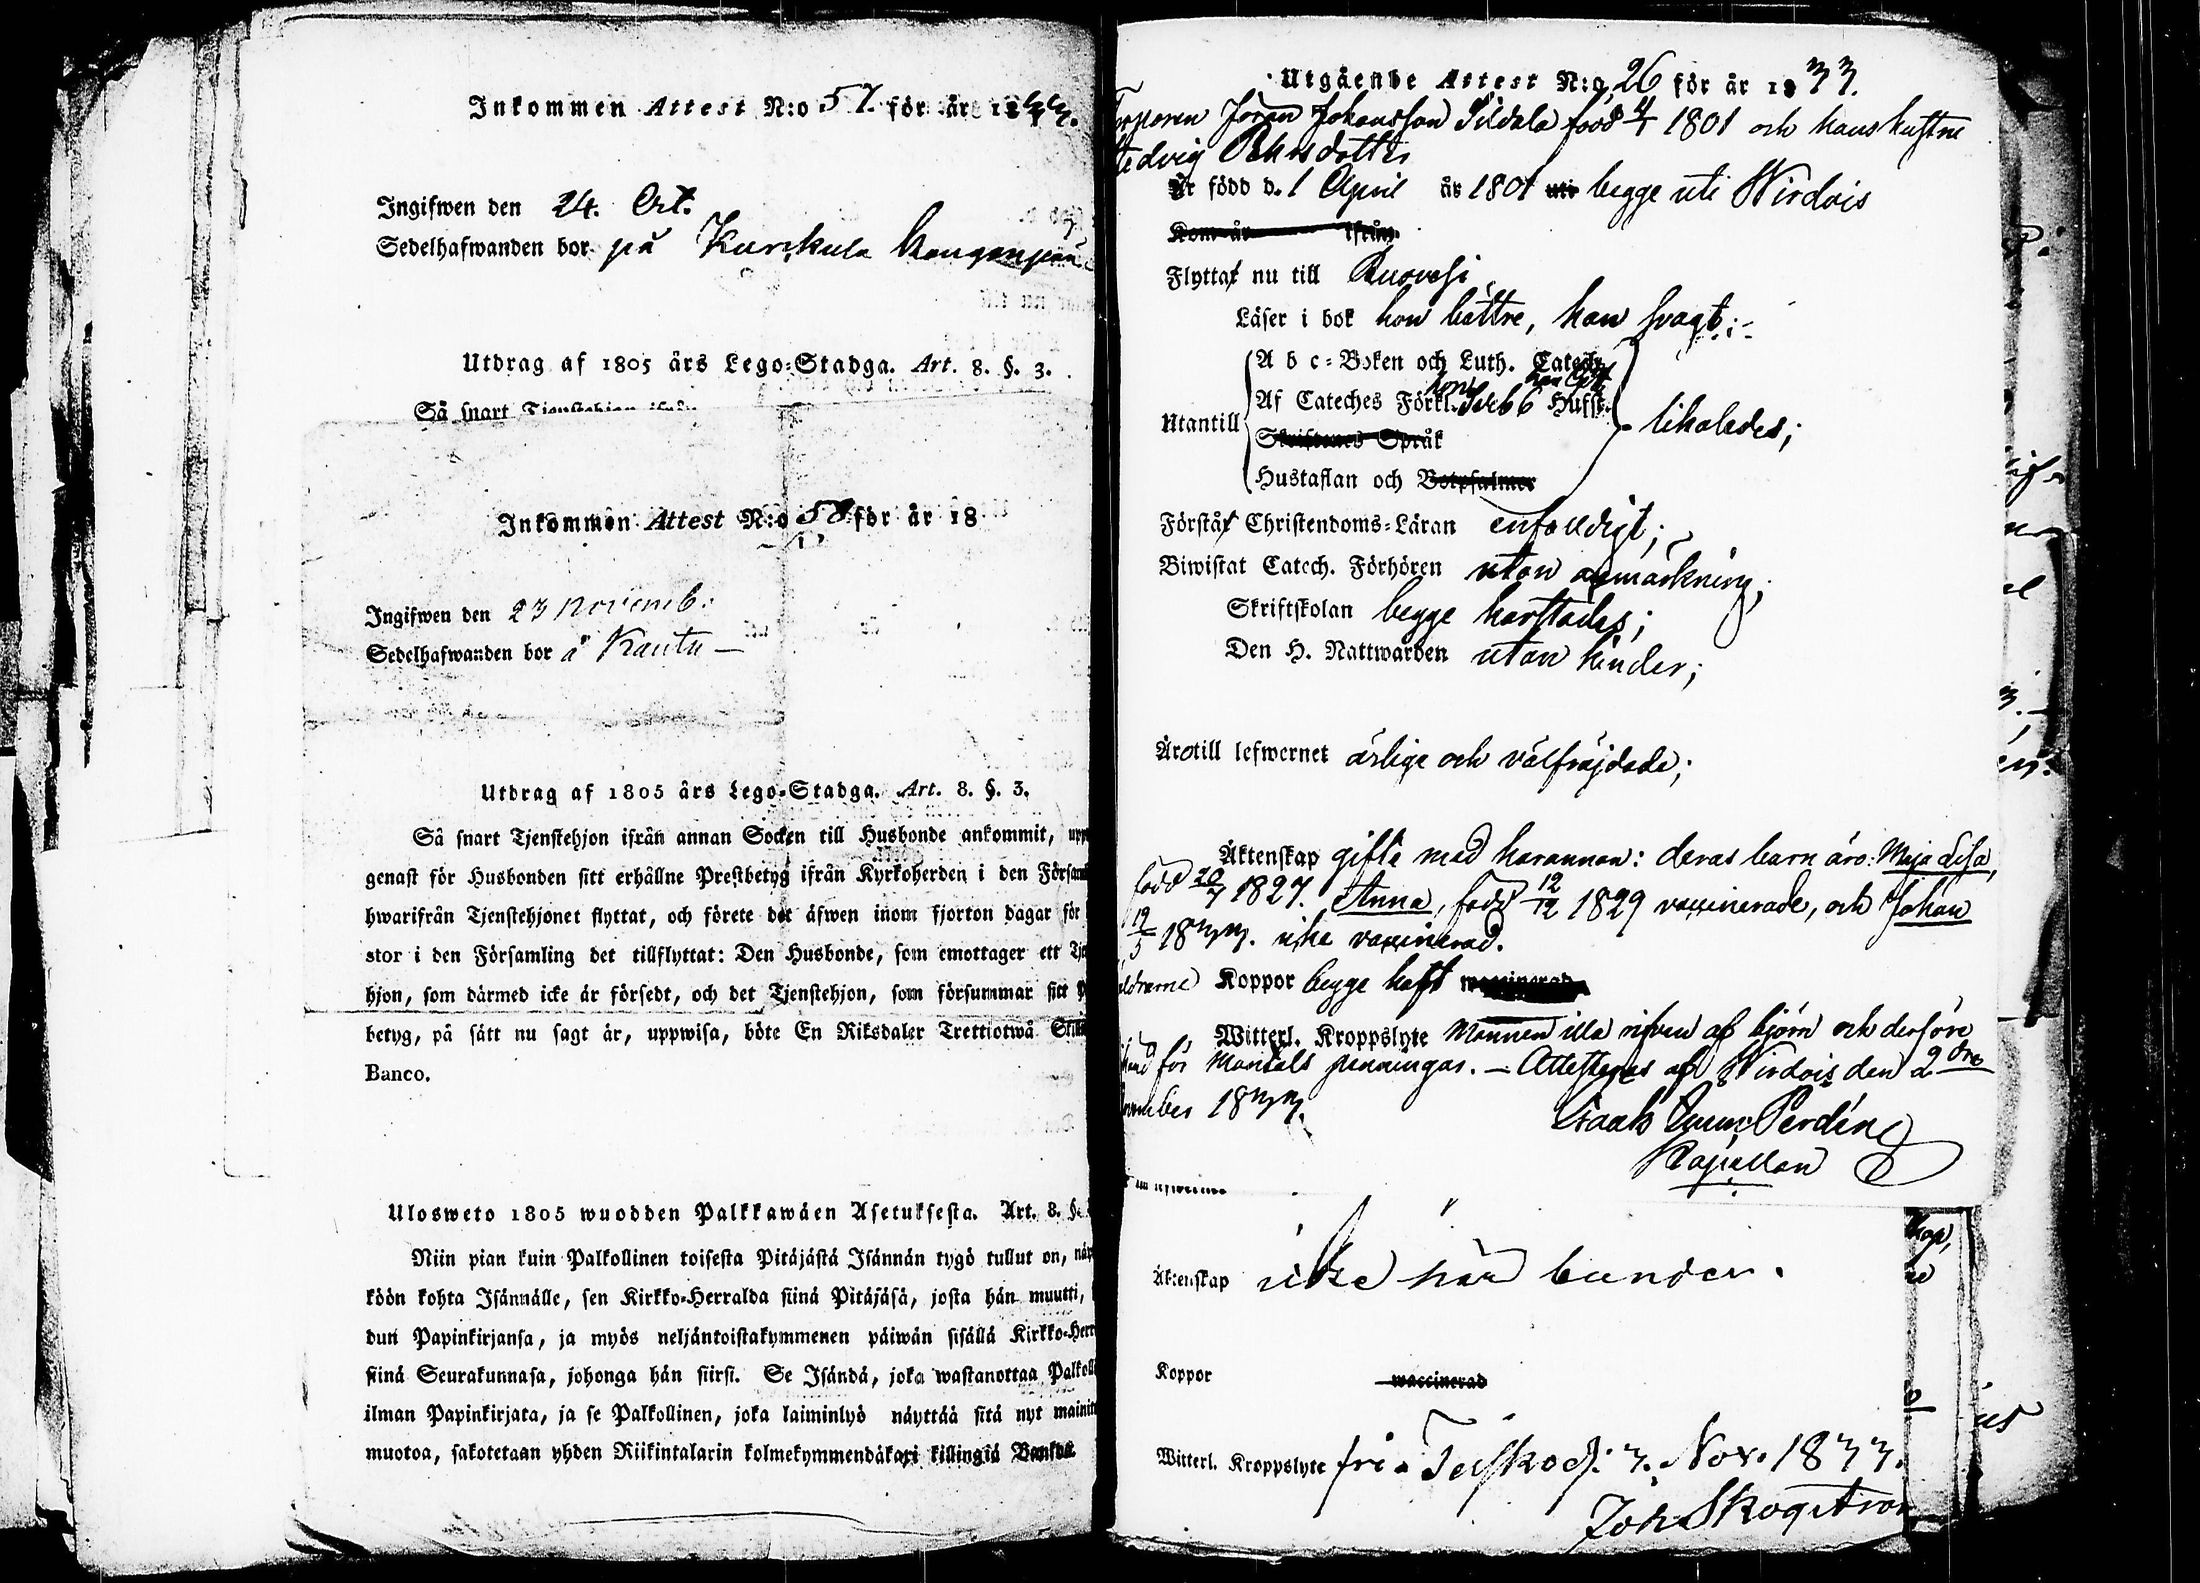 Inkommen Attest N:o 57. för år 1833.
Ingifwen den 24. Oct.
Sedelhafwanden bor på Kurkula
Utdrag af 1805 års Lego-Stadga. Art. 8. §. 3.
Så snart Tjenstehjon ifrån
Inkommen Attest N:o 58 för år 18
Ingifwen den 23 Novemb:
Sedelhafwanden bor å Kautu —
Utdrag af 1805 års Lego-Stadga. Art. 8. §. 3.
Så snart Tjenstehjon ifrån annan Socken till Husbonde ankommit, upp
genast för Husbonden sitt erhållne Prestbetyg ifrån Kyrkoherden i den Försam
hwarifrån Tjenstehjonet flyttat, och förete det äfwen inom fjorton dagar för
stor i den Församling det tillflyttat: Den Husbonde, som emottager ett Tje
hjon, som därmed icke är försedt, och det Tjenstehjon, som försummar sitt
betyg, på sätt nu sagt är, uppwisa, böte En Riksdaler Trettiotwå Skill
Banco.
Ulosweto 1805 wuodden Palkkawäen Asetuksesta. Art. 8. §.
Niin pian kuin Palkollinen toisesta Pitäjästä Isännän tygö tullut on, näy
köön kohta Isännälle, sen Kirkko-Herralda siinä Pitäjäsä, josta hän muutti,
dun Papinkirjansa, ja myös neljäntoistakymmenen päiwän sisällä Kirkko-Herr
siinä Seurakunnasa, johonga hän siirsi. Se Isändä, joka wastanottaa Palkolli
ilman Papinkirjata, ja se Palkollinen, joka laiminlyö näyttää sitä nyt mainit
muotoa, sakotetaan yhden Riikintalarin kolmekymmendäkaxi killingiä Bankos
Utgående Attest N:o 26 för år 1833.
Torparen Jöran Johansson Sildala född 4/1 1801 och hans hustru
Hedvig Petersdotter
Är född d. 1 April år 1801 uti begge uti Wirdois
Kom år ifrån
Flyttat nu till Ruovesi
Läser i bok hon bättre, han svagt;
Utantill
A b c-Boken och Luth. Catech.
Af Cateches Förkl. hon Huffst.
Skriftenes Språk
Hustaflan och Botpsalmer
likaledes;
Förstår Christendoms-Läran enfaldigt;
Biwistat Catech. Förhören utan anmärkning;
Skriftskolan begge harstädes;
Den H. Nattwarden utan hinder;
Äro till lefwernet ärlige och välfräjdade;
Äktenskap gifte med hvarannan: deras barn äro: Maja Lisa,
född 20/7 1827. Anna, född 12/12 1829 vaccinerade, och Johan
12/5 1833. icke vaccinerad.
ldrarne Koppor begge haft waccinerad
Witterl. Kroppslyte Mannen illa rifven af björn och derföre
för Mantals penningar. — Attesteras af Wirdois den 2dra
ovember 1833.
Isaak Perdén
Kapellan
Äktenskap icke här bunden.
Koppor waccinerad
Witterl. Kroppslyte fri. Teisko d. 3. Nov. 1833.
Joh. Skogström